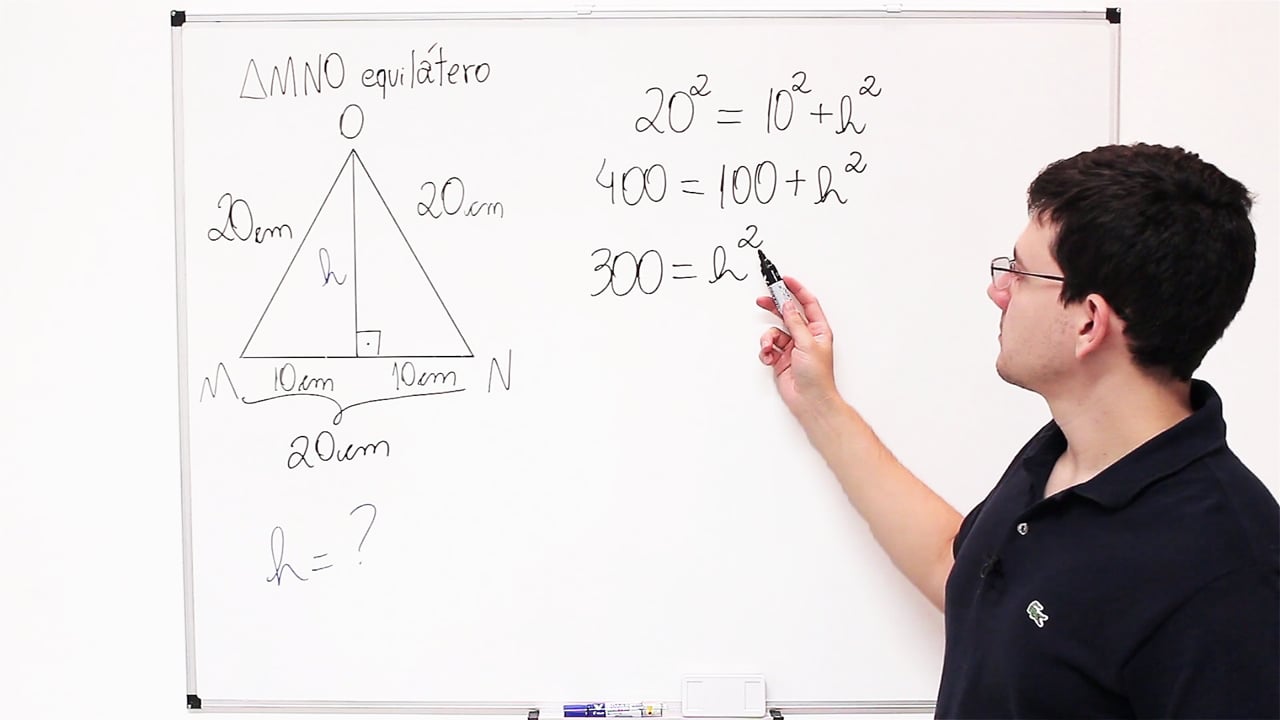 △MNO equilátero
O
20cm
20cm
h
M
10cm
10cm
N
20cm
h = ?
20² = 10² + h²
400 = 100 + h²
300 = h²